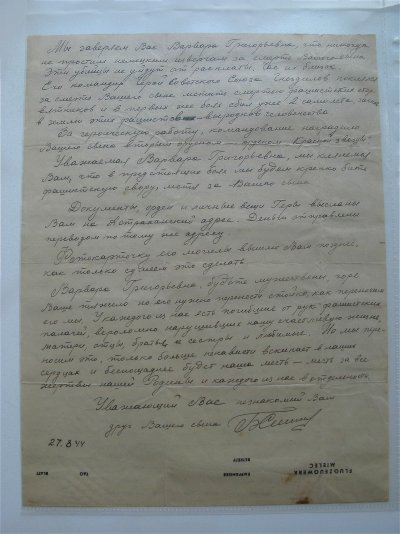 Мы заверяем Вас Варвара Григорьевна, что никогда
не простим немецким извергам за смерть Вашего сына
Эти убийцы не уйдут от расплаты. Час их близок
Его командир Герой Советского Союза поклялся
за смерть Вашего сына мстить смертью фашистских
и в первых же боях сбил уже 2 самолета
в землю этих фашистов человечества
За героическую работу, командование наградило
Вашего сына вторым орденом "орденом Красной Звезды".
Уважаемая Варвара Григорьевна, мы клянемся
Вам, что в предстоящих боях мы будем крепко бить
фашистскую свору, мстя за Вашего сына
Документы, ордена и личные вещи Геры высланы
Вам на Астраханский адрес. Деньги отправлены
переводом по тому же адресу.
Фотокарточку его могилы вышлю Вам позднее,
как только сумеем это сделать.
Варвара Григорьевна, будьте мужественны, горе
Ваше тяжело но его нужно перенести стойко, как переносим
его мы. У каждого из нас есть погибшие от рук фашистских
палачей, вероломно нарушивших нашу счастливую жизнь,
матери, отцы, братья и сестры и любимые. Но мы пере-
носим это, только больше ненависти вскипает в наших
сердцах и беспощаднее будет наша месть – месть за все
жертвы нашей Родины и каждого из нас в отдельности.
Уважающий Вас незнакомый Вам
друг Вашего сына
27.8.44
FLUGZEUGWERK
MIELEC
EMPFAENGER
BETREFF
TAG
BLATT